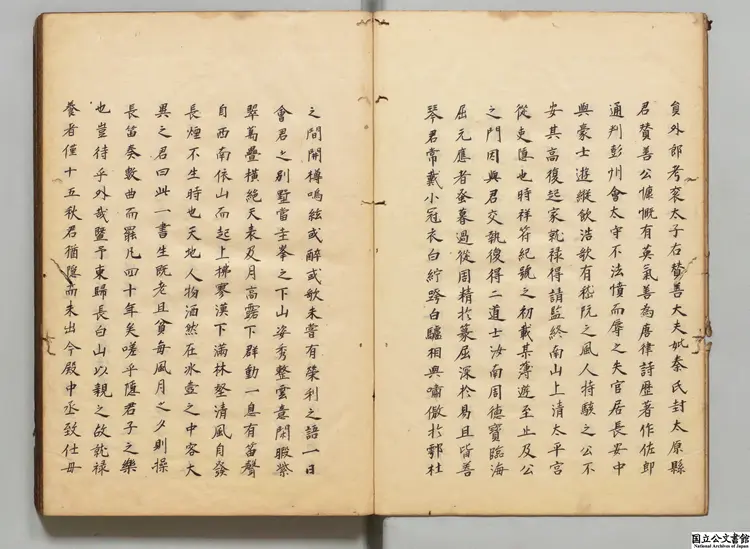 員外郎考袞太子右賛善大夫妣秦氏封太原縣
君賛善公慷慨有英氣善為唐律詩歴著作佐郎
通判彭州會太守不法憤而辱之失官居長安中
與豪士遊縱飲浩歌有嵇阮之風人持駭之公不
安其高復起家就禄得請監終南山上清太平宮
從吏隠也時祥符紀號之初載某薄遊至止及公
之門因與君交執復得二道士汝南周德寳臨海
屈元應者蚤暮過從周精於篆屈深於易且皆善
琴君常戴小冠衣白紵跨白驢相與嘯傲於鄠杜
之間開樽鳴絃或醉或歌未嘗有榮利之語一日
會君之别墅當圭峯之下山姿秀整雲意閑暇紫
翠萬疊横絶天表及月髙露下群動一息有笛聲
自西南依山而起上拂寥漢下滿林壑清風自發
長煙不生時也天地人物洒然在氷壺之中客大
異之君曰此一書生既老且貧每風月之夕則操
長笛奏數曲而罷凡四十年矣嗟乎隠君子之樂
也豈待乎外哉暨予東歸長白山以親之故就禄
養者僅十五秋君猶隠而未出今殿中丞致仕毋
国立公文書館
National Archives of Japan